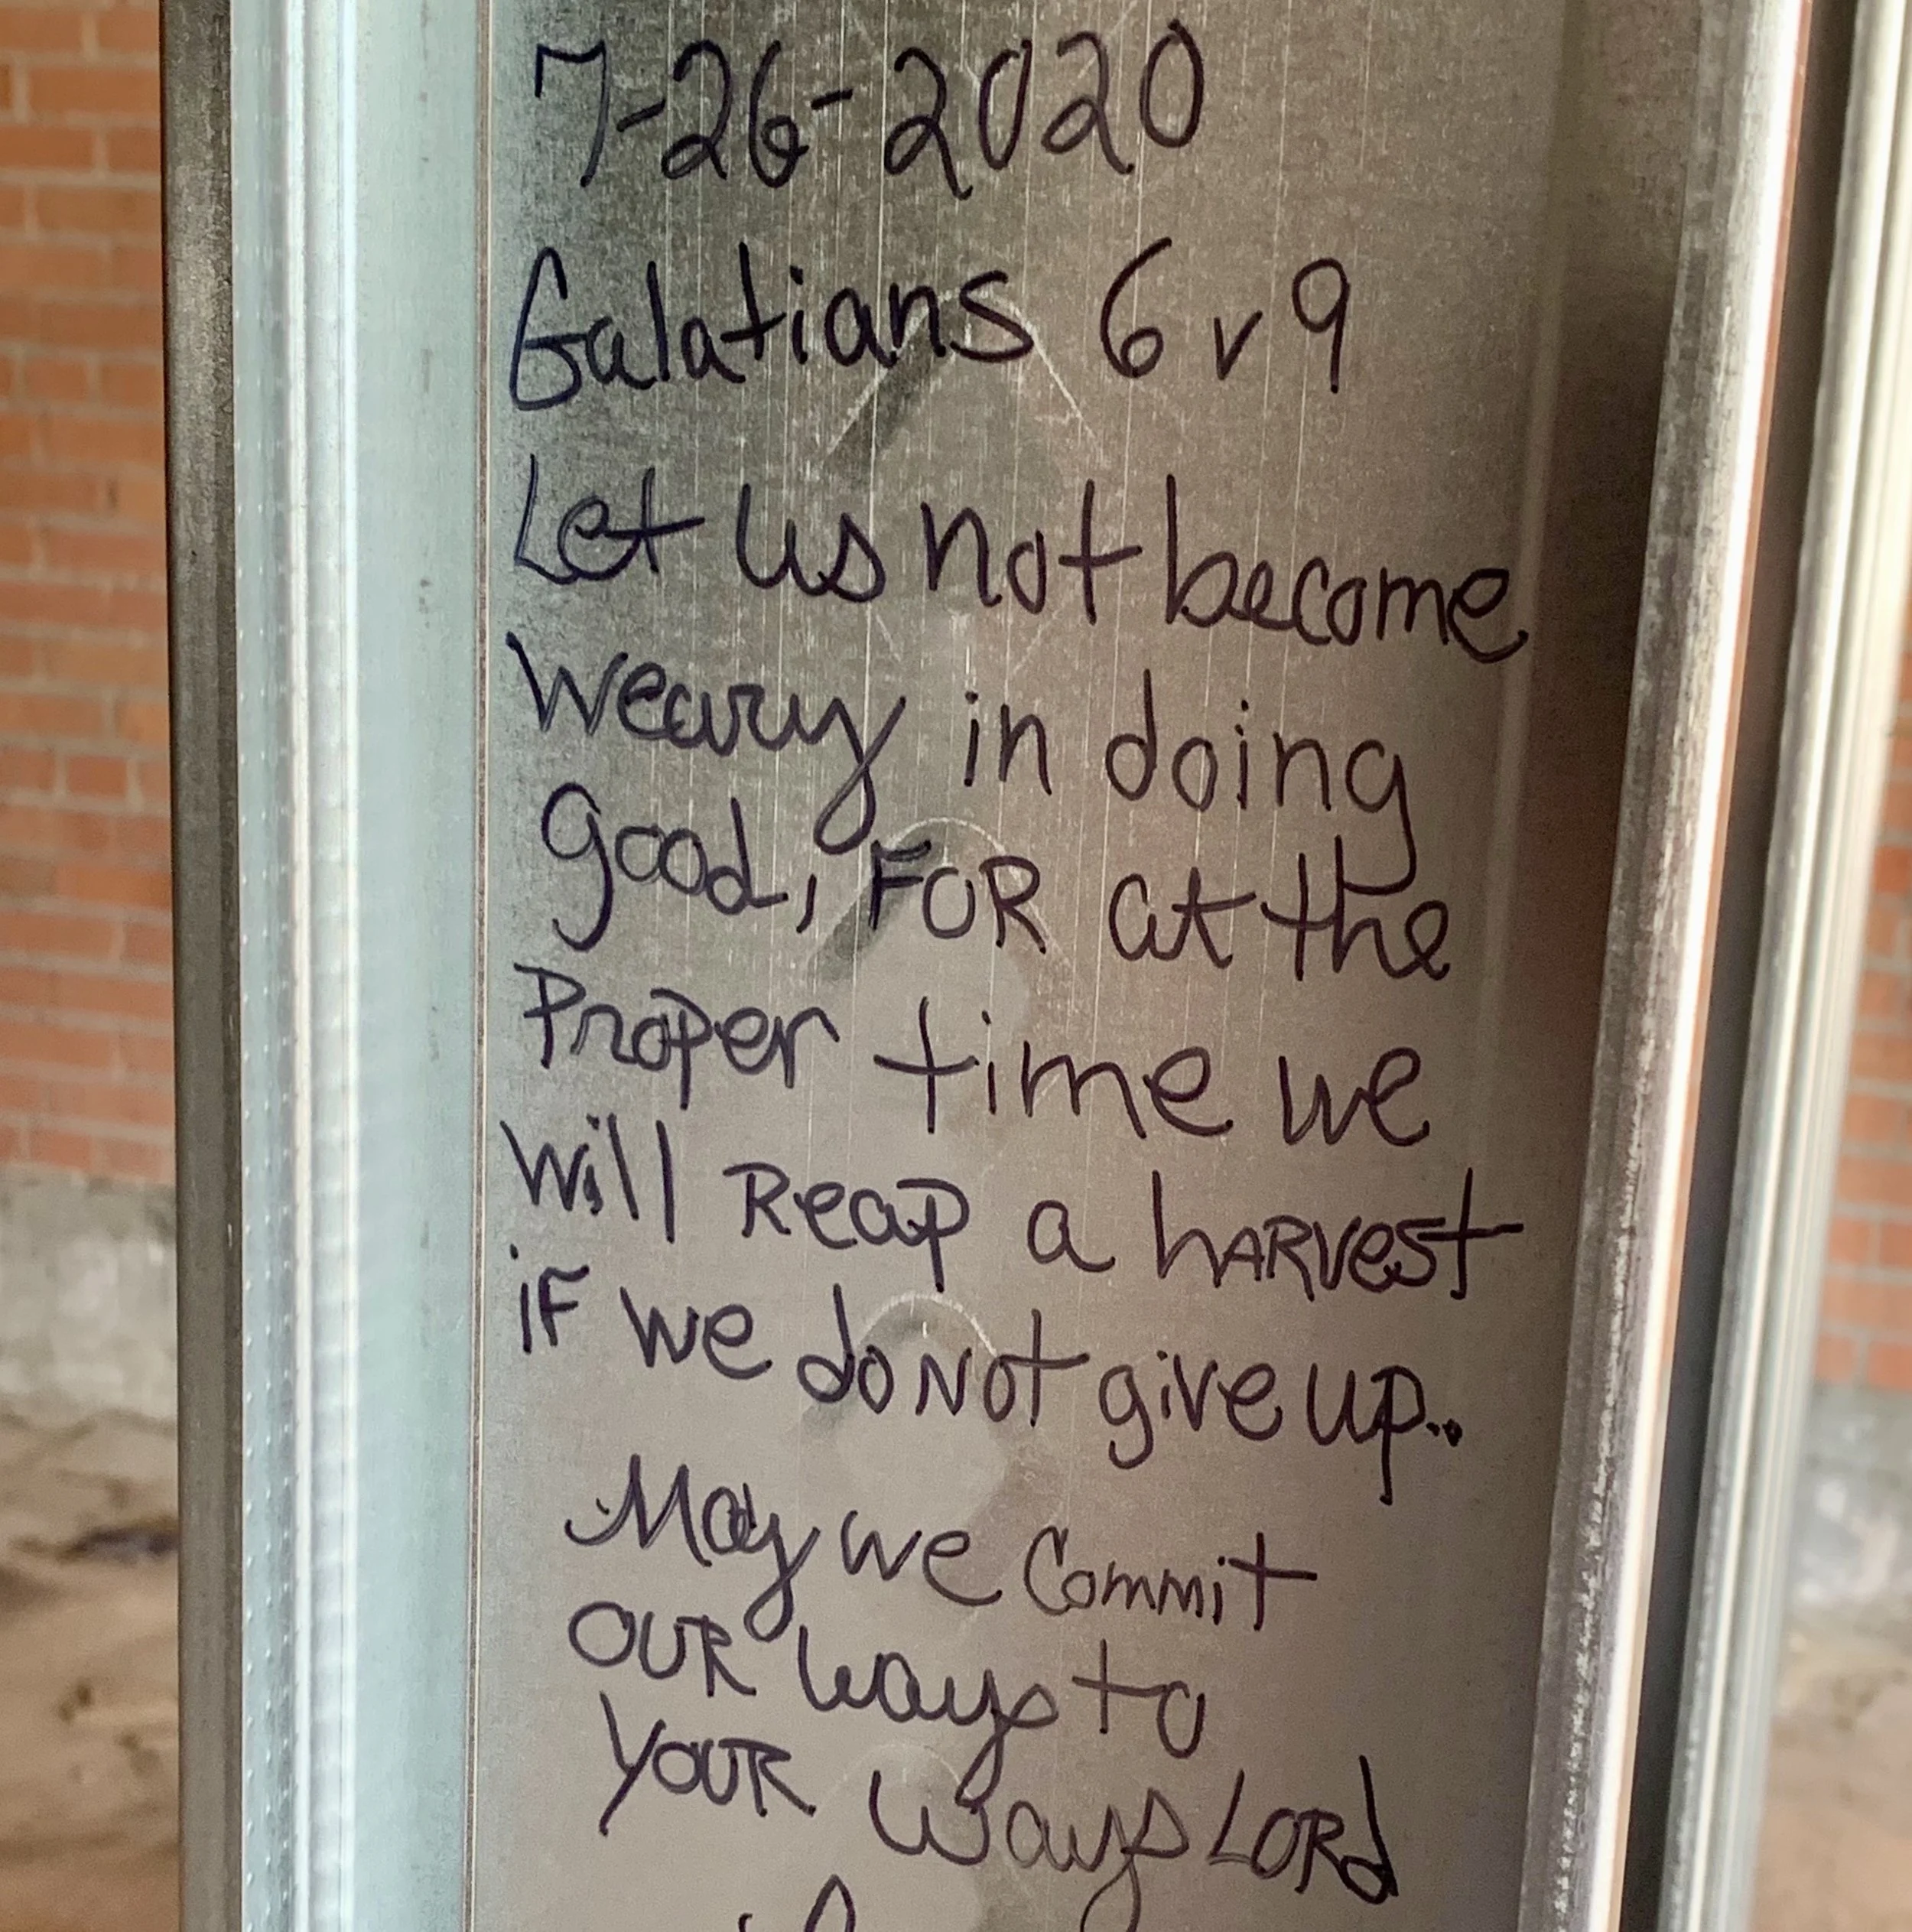 7-26-2020
Galatians 6 v 9
Let us not become
weary in doing
good, FOR at the
Proper time we
will Reap a hARVest
iF we do Not give up..
May we Commit
OUR ways to
YOUR ways LORd